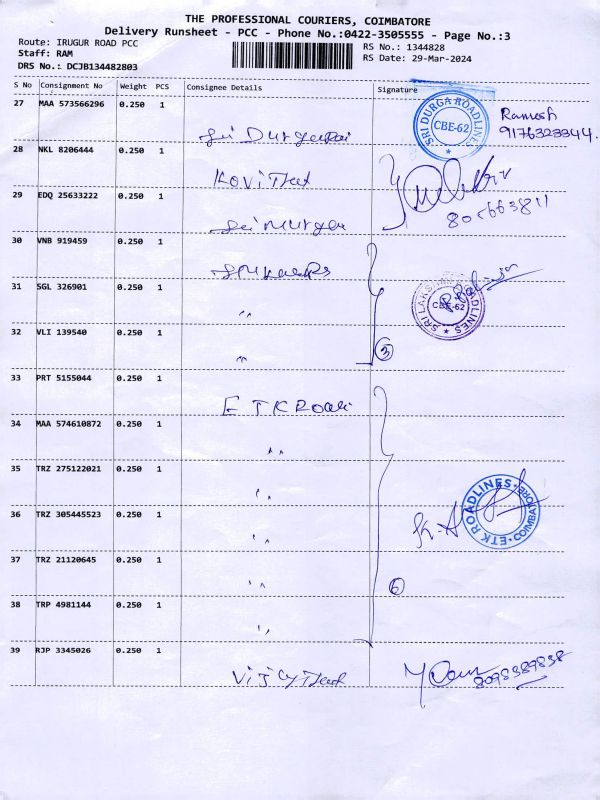 THE PROFESSIONAL COURIERS, COIMBATORE
Delivery Runsheet - PCC - Phone No.:0422-3505555 - Page No.:3
Route: IRUGUR ROAD PCC
Staff: RAM
DRS No.: DCJB134482803
RS No.: 1344828
RS Date: 29-Mar-2024
S No Consignment No Weight PCS Consignee Details Signature
27 MAA 573566296 0.250 1
SRI DURGA ROADLINES
CBE-62
Ramesh
9176323344.
28 NKL 8206444 0.250 1
29 EDQ 25633222 0.250 1
30 VNB 919459 0.250 1
31 SGL 326901 0.250 1 "
CBE-62
32 VLI 139540 0.250 1 "
3
33 PRT 5155044 0.250 1
34 MAA 574610872 0.250 1 "
35 TRZ 275122021 0.250 1 "
36 TRZ 305445523 0.250 1 "
ETK ROADLINES
37 TRZ 21120645 0.250 1 "
6
38 TRP 4981144 0.250 1 "
39 RJP 3345026 0.250 1
8098389838